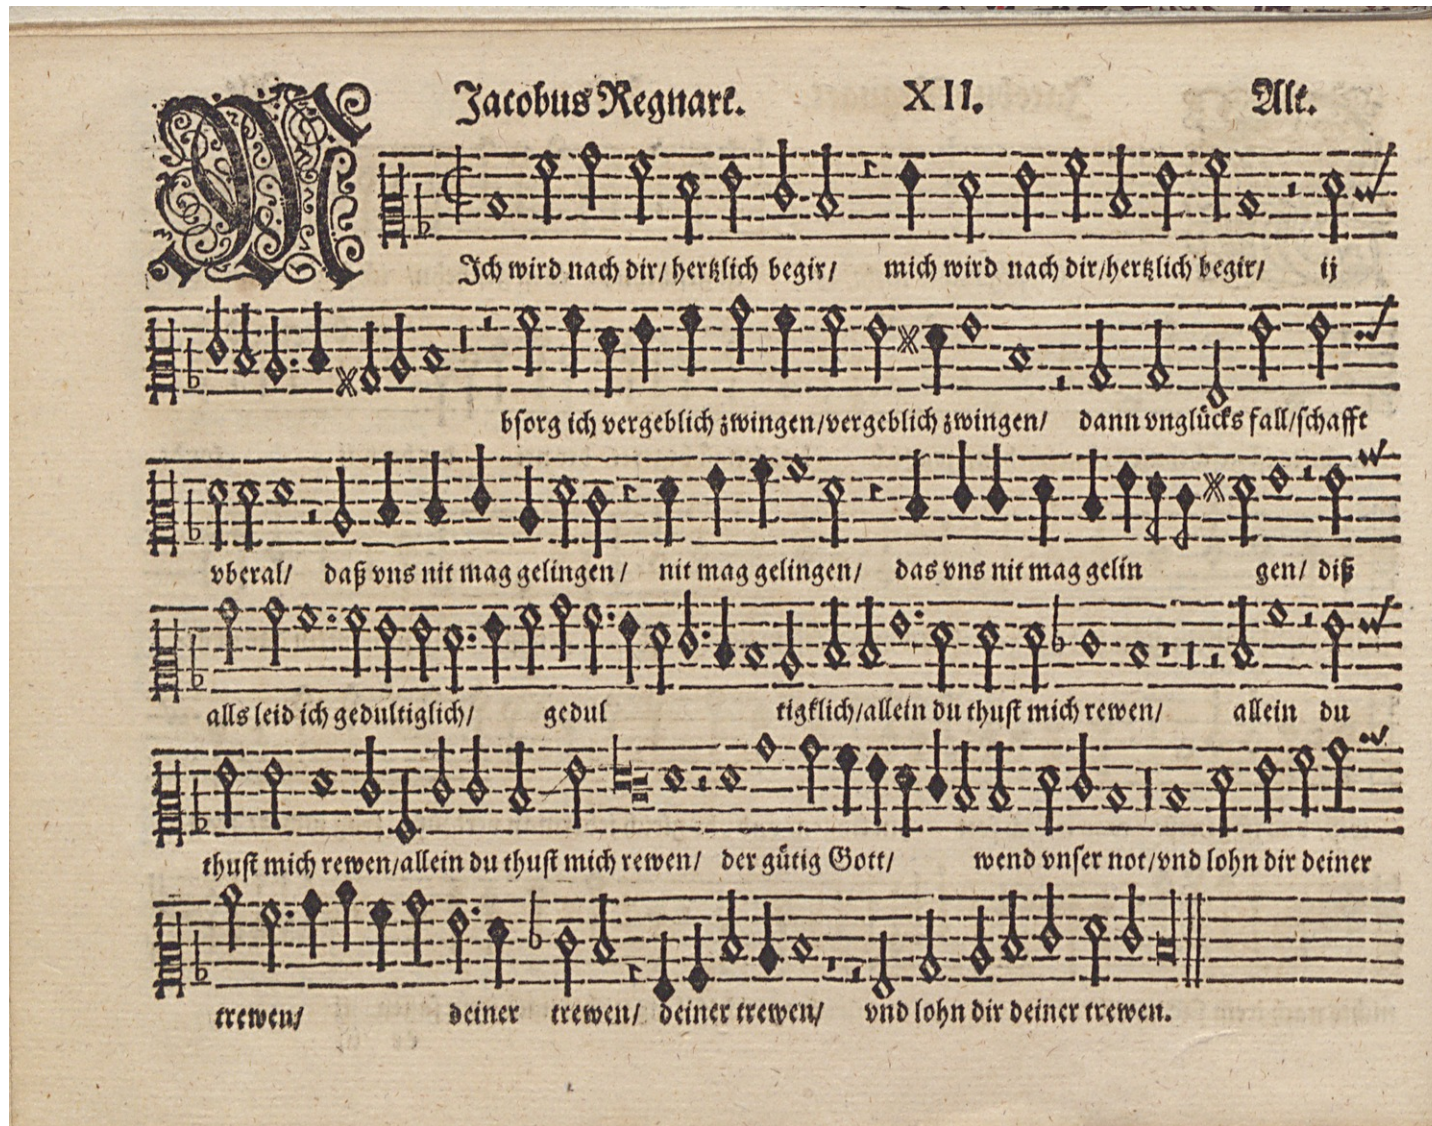 Jacobus Regnart. XII. Alt.
MJch wird nach dir/ hertzlich begir/ mich wird nach dir/hertzlich begir/ ij
bsorg ich vergeblich zwingen/vergeblich zwingen/ dann vnglücks fall/schafft
vberal/ daß vns nit mag gelingen/ nit mag gelingen/ das vns nit mag gelin gen/ diß
alls leid ich gedultiglich/ gedul tigklich/allein du thust mich rewen/ allein du
thust mich rewen/allein du thust mich rewen/ der gütig Gott/ wend vnser not/vnd lohn dir deiner
trewen/ deiner trewen/ deiner trewen/ vnd lohn dir deiner trewen.